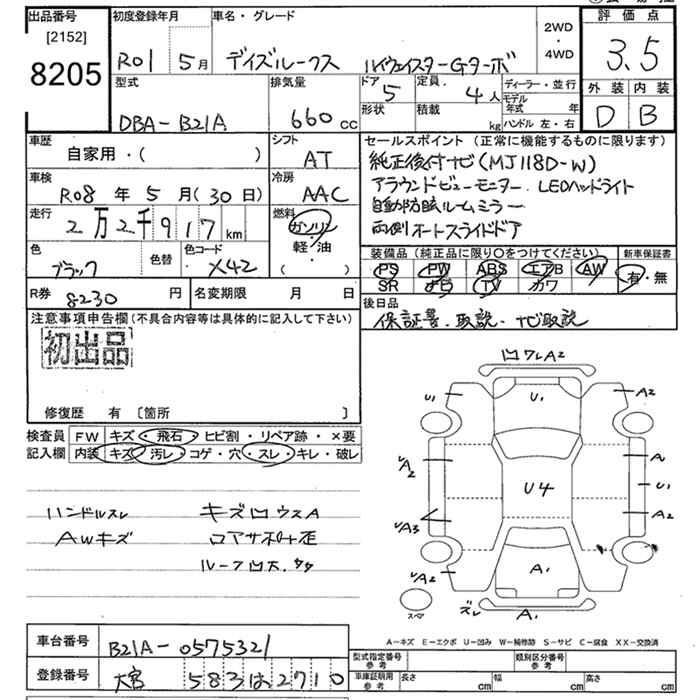 出品番号
[2152]
8205
初度登録年月
R01 5月
車名・グレード
デイズルークス ハイウェイスターGターボ
2WD
・
4WD
評価点
3.5
型式
DBA-B21A
排気量
660 cc
ドア 5
定員. 4人
形状
積載 kg
ディーラー・並行
モデル年式 年
ハンドル 左・右
外装 内装
D B
車歴
自家用・( )
シフト
AT
セールスポイント(正常に機能するものに限ります)
純正後付ナビ(MJ118D-W)
アラウンドビューモニター. LEDヘッドライト
自動防眩ルームミラー
両側オートスライドドア
車検
R08 年 5 月(30日)
冷房
AAC
走行
2万2千917km
燃料
ガソリン
軽・油
( )
色
ブラック
色替
色コード
X42
装備品(純正品に限り○をつけてください)
PS PW ABS エアB AW
SR ナビ TV カワ
新車保証書
有・無
R券 8230 円
名変期限 月 日
後日品
保証書. 取説. ナビ取説
注意事項申告欄(不具合内容等は具体的に記入して下さい)
初出品
修復歴 有 〔箇所 〕
検査員記入欄
FW キズ・飛石・ヒビ割・リペア跡・×要
内装 キズ・汚レ・コゲ・穴・スレ・キレ・破レ
ハンドルスレ キズ凹ウスA
AWキズ コアサポート歪
ルーフ凹大.
凹ワレA2
U1
U1
A2
A2
A
U1
U4
A3
A2
A2
A1
スペア
ズレ
A1
A-キズ E-エクボ U-凹み W-補修跡 S-サビ C-腐食 XX-交換済
車台番号
B21A-0575321
登録番号
大宮 583は2710
型式指定番号
参考
類別区分番号
参考
車庫証明用
参考
長さ cm
幅 cm
高さ cm